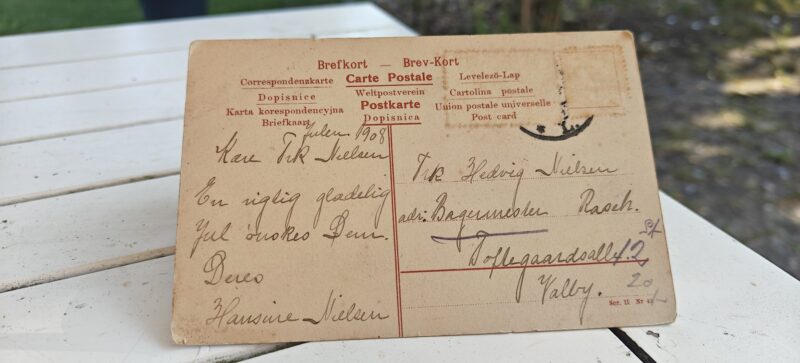 Brefkort — Brev-Kort
Correspondenzkarte Carte Postale Levelező-Lap
Dopisnice Weltpostverein Cartolina postale
Karta korespondencyjna Postkarte Union postale universelle
Briefkaart Dopisnica Post card
Julen 1908
Kære Frk Nielsen
En rigtig glædelig
Jul ønskes Dem.
Deres
Hansine Nielsen
Frk Hedvig Nielsen
adr. Bagermester Rasch.
Toftegaardsalle 12
St
Valby.
20
Ser. 15 Nr